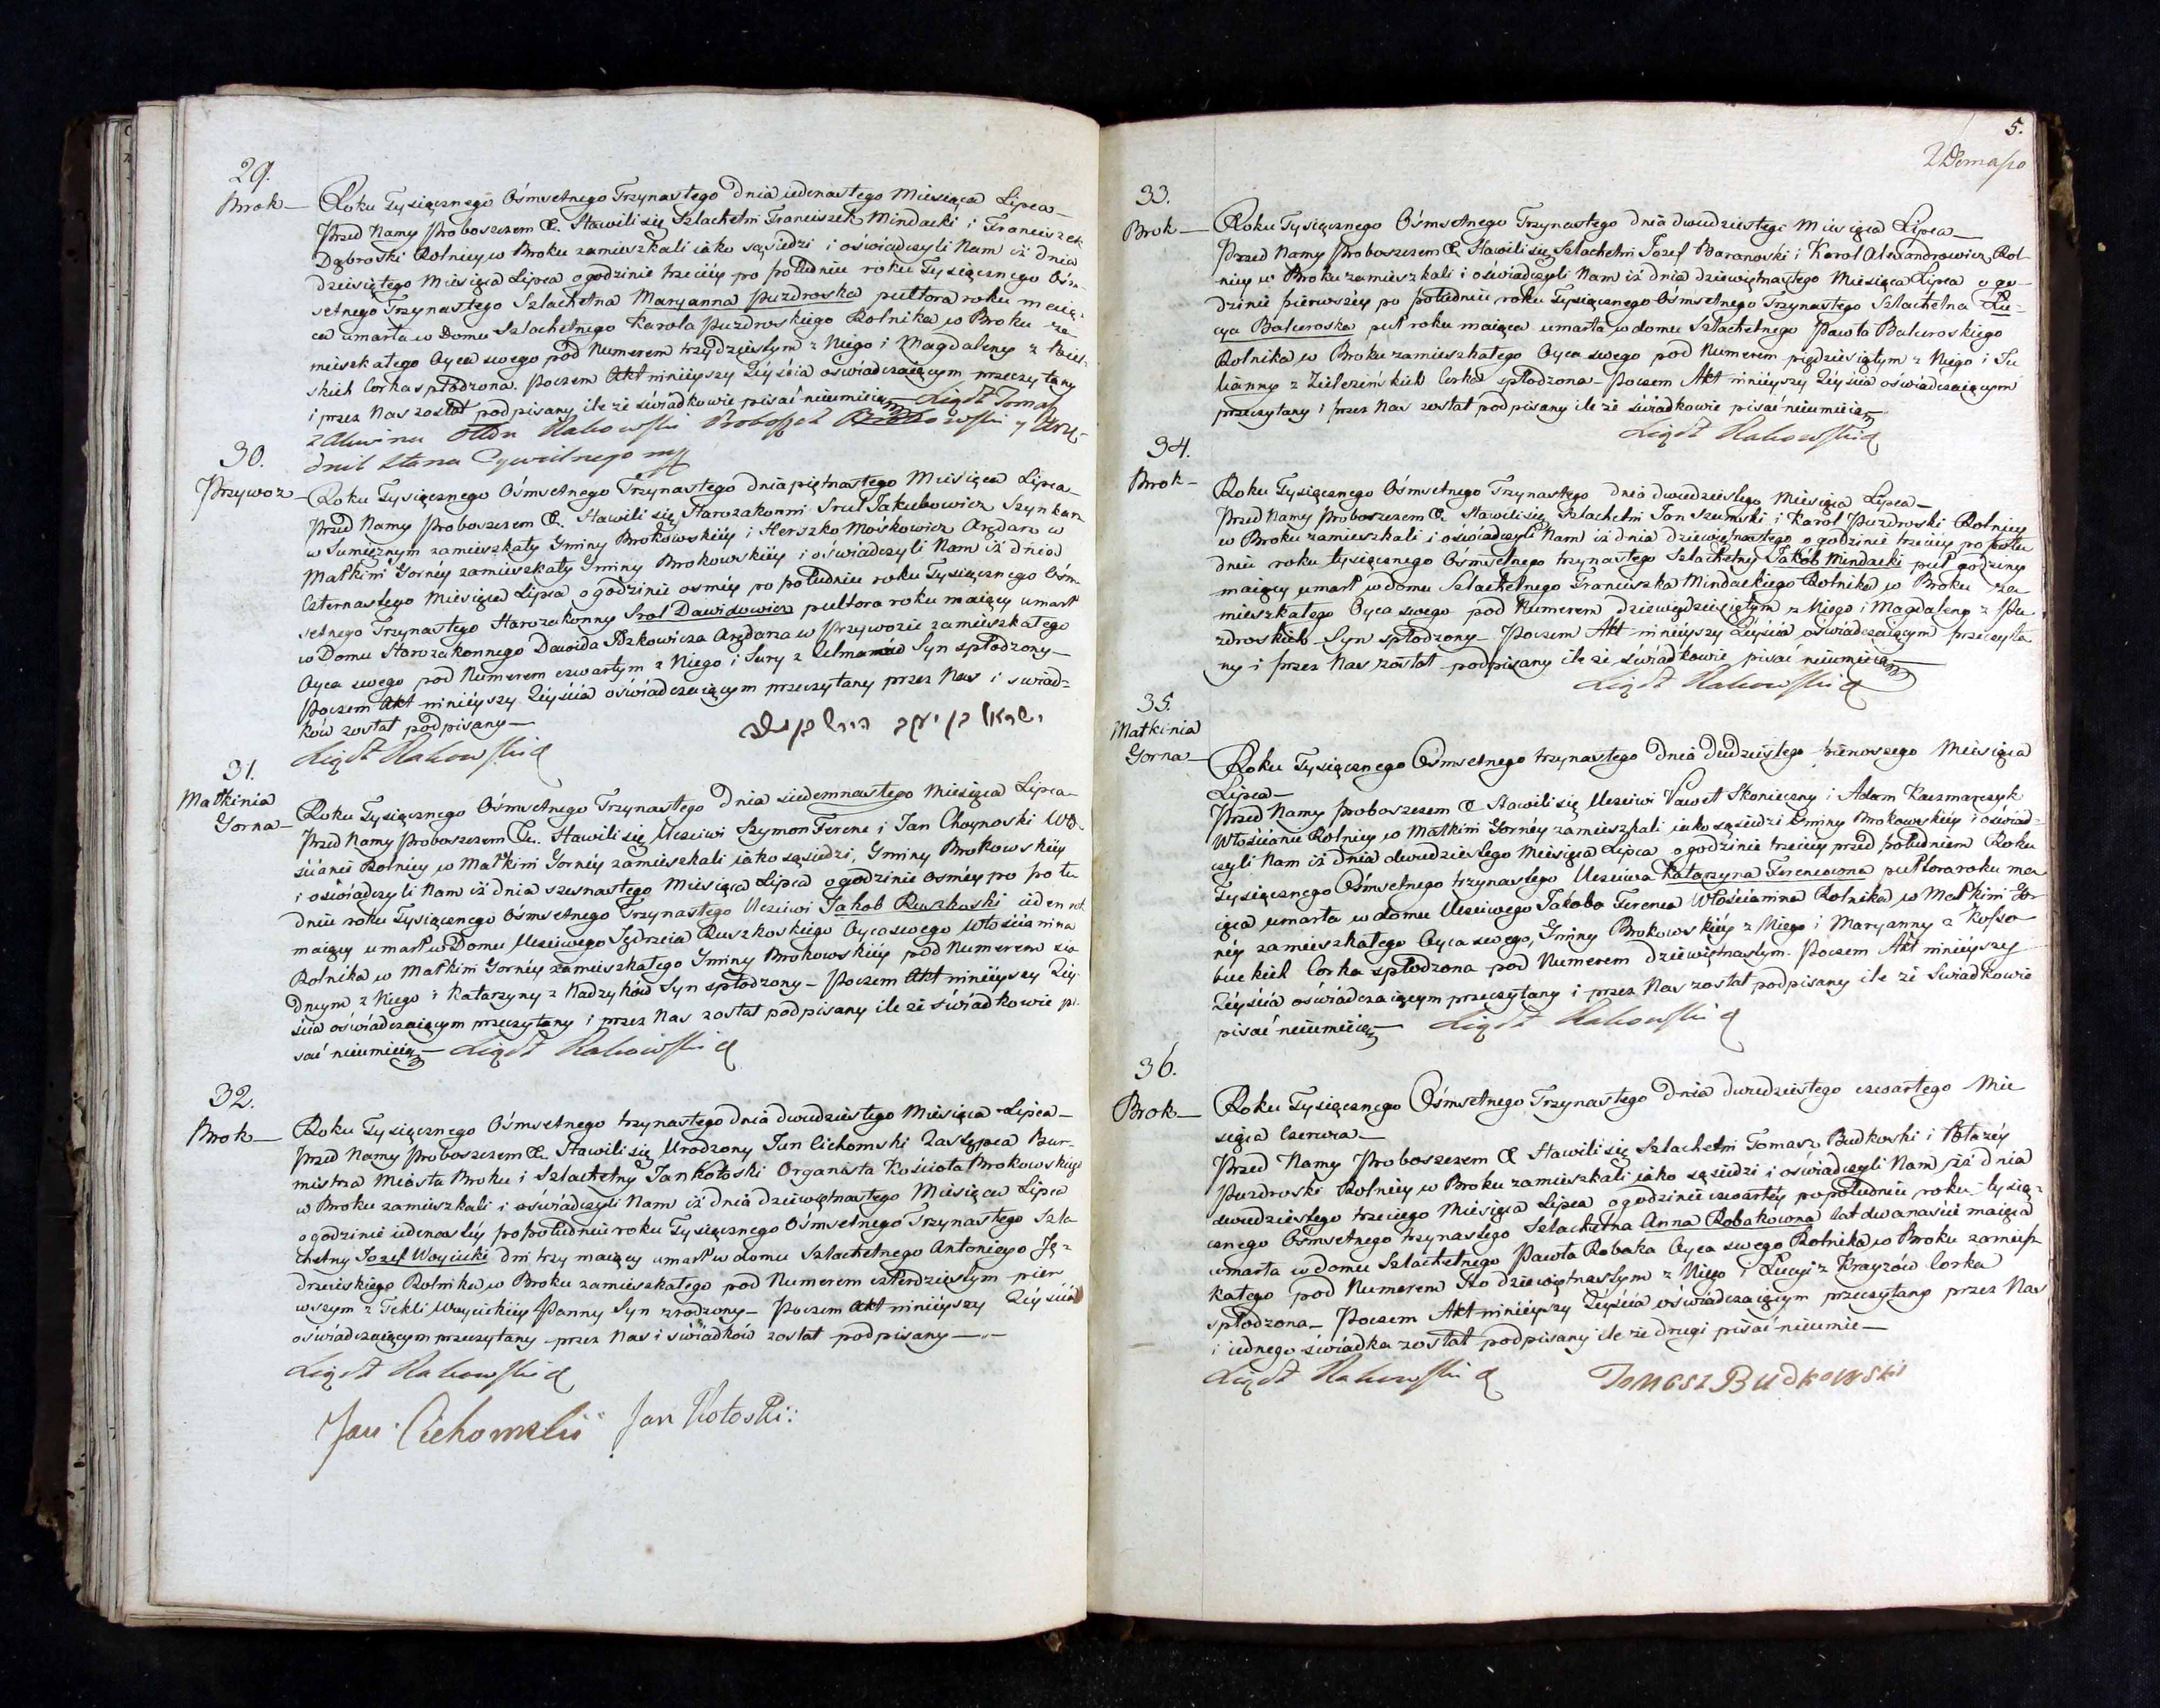 29.
Brok —
Roku Tysiącznego Ośmsetnego Trzynastego dnia iedenastego Miesiąca Lipca —
Przed Namy Proboszczem &. Stawili się Szlachetni Franciszek Mindacki i Franciszek
Dąbroski Rolnicy w Broku zamieszkali iako sąsiedzi i oświadczyli Nam iż dnia
dziesiętego Miesiąca Lipca o godzinie trzeciéy po południu roku Tysiącznego Ośm-
setnego Trzynastego Szlachetna Maryanna Puzdroska pułtora roku maią-
ca umarła w Domu Szlachetnego Karola Puzdroskiego Rolnika w Broku za-
mieszkałego Oyca swego pod Numerem trzydziestym z Niego i Magdaleny z
skich Corka spłodzona. Poczem Akt ninieyszy Zéyścia oświadczaiącym przeczytany
i przez Nas został podpisany ile że świadkowie pisać nieumieią — Xiądz Tomasz
Rakowski Proboszcz Brokowski y Urzę-
dnik Stanu Cywilnego mp
30.
Przywoz —
Roku Tysiącznego Ośmsetnego Trzynastego dnia piętnastego Miesiąca Lipca —
Przed Namy Proboszczem &. Stawili się Starozakonni Srul Jakubowicz Szynkarz
w Sumiężnym zamieszkały Gminy Brokowskiéy i Herszko Mośkowicz Arędarz w
Małkini Gornéy zamieszkały Gminy Brokowskiéy i oświadczyli Nam iż dnia
Czternastego Miesiąca Lipca o godzinie osméy po południu roku Tysiącznego Ośm-
setnego Trzynastego Starozakonny Srol Dawidowicz pułtora roku maiący umarł
w Domu Starozakonnego Dawida Iczkowicza Arędarza w Przywozie zamieszkałego
Oyca swego pod Numerem czwartym z Niego i Sury z Zelmanów Syn spłodzony —
Poczem Akt ninieyszy Zéyścia oświadczaiącym przeczytany przez Nas i świad-
ków został podpisany —
ישראל בן יעקב הירש בן משה
Xiądz Rakowski
31.
Małkinia
Gorna —
Roku Tysiącznego Ośmsetnego Trzynastego Dnia siedemnastego Miesiąca Lipca
Przed Namy Proboszczem &. Stawili się Uczciwi Szymon Ferenc i Jan Choynoski Wło-
ścianie Rolnicy w Małkini Gornéy zamieszkali iako sąsiedzi, Gminy Brokowskiéy
i oświadczyli Nam iż dnia szesnastego Miesiąca Lipca o godzinie osméy po połu
dniu roku Tysiącznego Ośmsetnego Trzynastego Uczciwi Jakob Ruszkoski ieden rok
maiący umarł w Domu Uczciwego Jędrzeia Ruszkoskiego Oyca swego Włościanina
Rolnika w Małkini Gornéy zamieszkałego Gminy Brokowskiéy pod Numerem sio
dmym z Niego i Katarzyny z Kadzyków Syn spłodzony — Poczem Akt ninieyszy Zéy
ścia oświadczaiącym przeczytany i przez Nas został podpisany ile że świadkowie pi-
sać nieumieią — Xiądz Rakowski
32.
Brok —
Roku Tysiącznego Ośmsetnego trzynastego dnia dwudziestego Miesiąca Lipca —
Przed Namy Proboszczem &. Stawili się Urodzony Jan Cichomski Zastępca Bur-
mistrza Miasta Broku i Szlachetny Jan Kołoski Organista Kościoła Brokowskiego
w Broku zamieszkali i oświadczyli Nam iż dnia dziewiętnastego Miesiąca Lipca
o godzinie iedenastéy po południu roku Tysiącznego Ośmsetnego Trzynastego Szla-
chetny Jozef Woycicki dni trzy maiący umarł w domu Szlachetnego Antoniego Ję-
drzeiskiego Rolnika w Broku zamieszkałego pod Numerem czterdziestym pier
wszym z Tekli Woycickiéy Panny Syn zrodzony — Poczem Akt ninieyszy Zéyścia
oświadczaiącym przeczytany przez Nas i świadków został podpisany —
Xiądz Rakowski
Jan Cichomski Jan Kołoski:
5.
33.
Brok —
Roku Tysiącznego Ośmsetnego Trzynastego dnia dwudziestego Miesiąca Lipca —
Przed Namy Proboszczem &. Stawili się Szlachetni Jozef Baranoski i Karol Alexandrowicz Rol-
nicy w Broku zamieszkali i oświadczyli Nam iż dnia dziewiętnastego Miesiąca Lipca o go-
dzinie pierwszéy po południu roku Tysiącznego Ośmsetnego Trzynastego Szlachetna Łu-
cya Baluroska puł roku maiąca umarła w domu Szlachetnego Pawła Baluroskiego
Rolnika w Broku zamieszkałego Oyca swego pod Numerem pięćdziesiątym z Niego i Ju
lianny z Zielezińskich Corka spłodzona — Poczem Akt ninieyszy Zéyścia oświadczaiącym
przeczytany i przez Nas został podpisany ile że świadkowie pisać nieumieią —
Xiądz Rakowski
34.
Brok —
Roku Tysiącznego Ośmsetnego Trzynastego dnia dwudziestego Miesiąca Lipca —
Przed Namy Proboszczem &. Stawili się Szlachetni Jan Szumski i Karol Puzdroski Rolnicy
w Broku zamieszkali i oświadczyli Nam iż dnia dziewiętnastego o godzinie trzeciéy po połu
dniu roku tysiącznego Ośmsetnego trzynastego Szlachetny Jakób Mindacki puł godziny
maiący umarł w domu Szlachetnego Franciszka Mindackiego Rolnika w Broku za
mieszkałego Oyca swego pod Numerem dziewięćdziesiątym z Niego i Magdaleny z Pu
zdroskich Syn spłodzony — Poczem Akt ninieyszy Zéyścia oświadczaiącym przeczyta
ny i przez Nas został podpisany ile że świadkowie pisać nieumieią —
Xiądz Rakowski
35.
Małkinia
Gorna —
Roku Tysiącznego Ośmsetnego trzynastego Dnia dudziestego pierwszego Miesiąca
Lipca —
Przed Namy Proboszczem & Stawili się Uczciwi Paweł Skonieczny i Adam Kaczmarczyk
Włościanie Rolnicy w Małkini Gornéy zamieszkali iako sąsiedzi Gminy Brokowskiéy i oświad-
czyli Nam iż Dnia dwudziestego Miesiąca Lipca o godzinie trzeciéy przed południem Roku
Tysiącznego Ośmsetnego trzynastego Uczciwa Katarzyna Ferencowna pułtora roku ma
iąca umarła w domu Uczciwego Jakoba Ferenca Włościanina Rolnika w Małkini Gor
néy zamieszkałego Oyca swego, Gminy Brokowskiéy z Niego i Maryanny z Kossa
buckich Corka spłodzona pod Numerem dziewiętnastym. Poczem Akt ninieyszy
Zéyścia oświadczaiącym przeczytany i przez Nas został podpisany ile że Świadkowie
pisać nieumieią — Xiądz Rakowski
36.
Brok —
Roku Tysiącznego Ośmsetnego Trzynastego Dnia dwudziestego czwartego Mie
siąca Czerwca —
Przed Namy Proboszczem & Stawili się Szlachetni Tomasz Budkoski i Błażéy
Puzdroski Rolnicy w Broku zamieszkali iako sąsiedzi i oświadczyli Nam iż dnia
dwudziestego trzeciego Miesiąca Lipca o godzinie czwartéy popołudniu roku tysią-
cznego Ośmsetnego trzynastego Szlachetna Anna Robakowna lat dwanaście maiąca
umarła w domu Szlachetnego Pawła Robaka Oyca swego Rolnika w Broku zamiesz
kałego pod Numerem Sto dziewiętnastym z Niego i Łucyi z Krayzów Corka
spłodzona — Poczem Akt ninieyszy Zéyścia oświadczaiącym przeczytany przez Nas
i iednego świadka został podpisany ile że drugi pisać nieumie —
Xiądz Rakowski Tomasz Budkowski